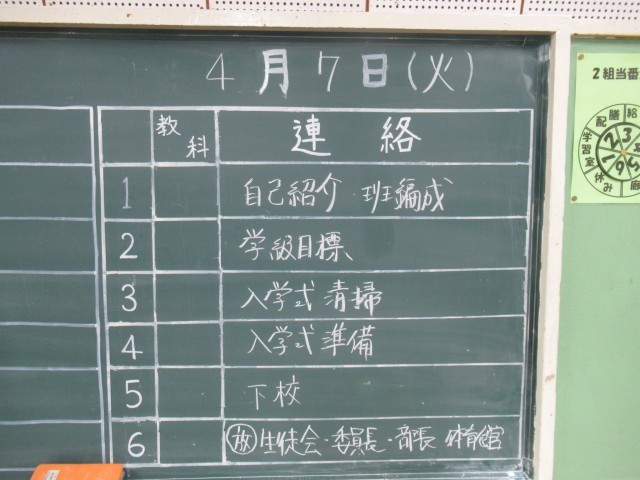 4月7日(火)
教科 連絡
1 自己紹介 班編成
2 学級目標、
3 入学式清掃
4 入学式準備
5 下校
6 放 生徒会・委員長・部長 体育館
2組当番
配膳 給
学習室
休み
廊